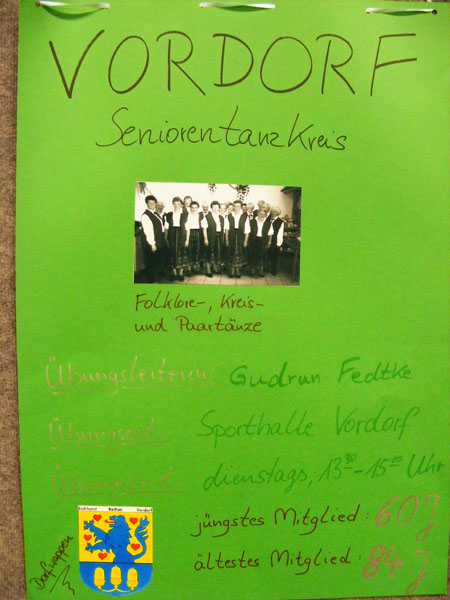 VORDORF
Seniorentanzkreis
Folklore-, Kreis-
und Paartänze
Übungsleiterin: Gudrun Fedtke
Übungsort Sporthalle Vordorf
Übungszeit dienstags, 13³⁰-15⁰⁰ Uhr
jüngstes Mitglied: 60 J
ältestes Mitglied: 84 J
Eickhorst Rethen Vordorf
Dorfwappen